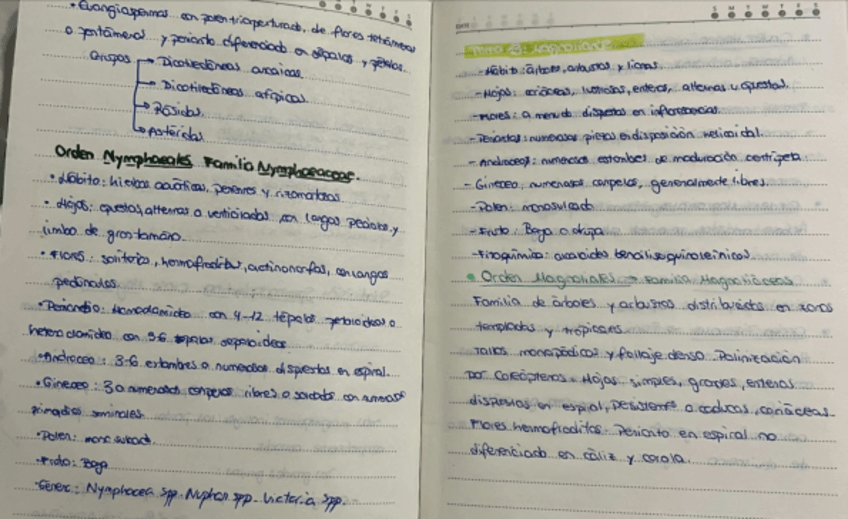 • Euangiospermas con polen triaperturado, de flores tetrámeras
o pentámeras y perianto diferenciado en sépalos y pétalos.
Grupos → Dicotiledóneas arcaicas
→ Dicotiledóneas atípicas
→ Rósidas
→ Astéridas
Orden Nymphaeales Familia Nymphaeaceae.
• Hábito: hierbas acuáticas, perennes y rizomatosas
• Hojas: opuestas, alternas o verticiladas con largos peciolos y
limbo de gran tamaño.
• Flores: solitarias, hermafroditas, actinomorfas, con largos
pedúnculos
• Periantio: Homoclamideo con 4-12 tépalos petaloideos o
heteroclamideo con 3-6 sépalos sepaloideos
• Androceo: 3-6 estambres o numerosos dispuestos en espiral.
• Gineceo: 3 o numerosos carpelos libres o soldados con numerosos
primordios seminales
• Polen: monosulcado.
• Fruto: Baya
• Géneros: Nymphaea spp. Nuphar spp. Victoria spp.
S M T W T F S
- Hábito: árboles, arbustos y lianas.
- Hojas: coriáceas, lustrosas, enteras, alternas u opuestas.
- Flores: a menudo dispuestas en inflorescencias.
- Periantos: numerosas piezas en disposición helicoidal.
- Androceos: numerosos estambres de maduración centrípeta.
- Gineceo, numerosos carpelos, generalmente libres.
- Polen: monosulcado
- Fruto: Baya o drupa
- Fitoquímica: alcaloides bencilisoquinoleínicos.
• Orden Magnoliales → Familia Magnoliáceas
Familia de árboles y arbustos distribuidos en zonas
templadas y trópicales
Tallos monopódicos y follaje denso. Polinización
por Coleópteros. Hojas simples, grandes, enteras
dispuestas en espiral, persistente o caducas, coriáceas.
Flores hermafroditas. Perianto en espiral no
diferenciado en cáliz y corola.